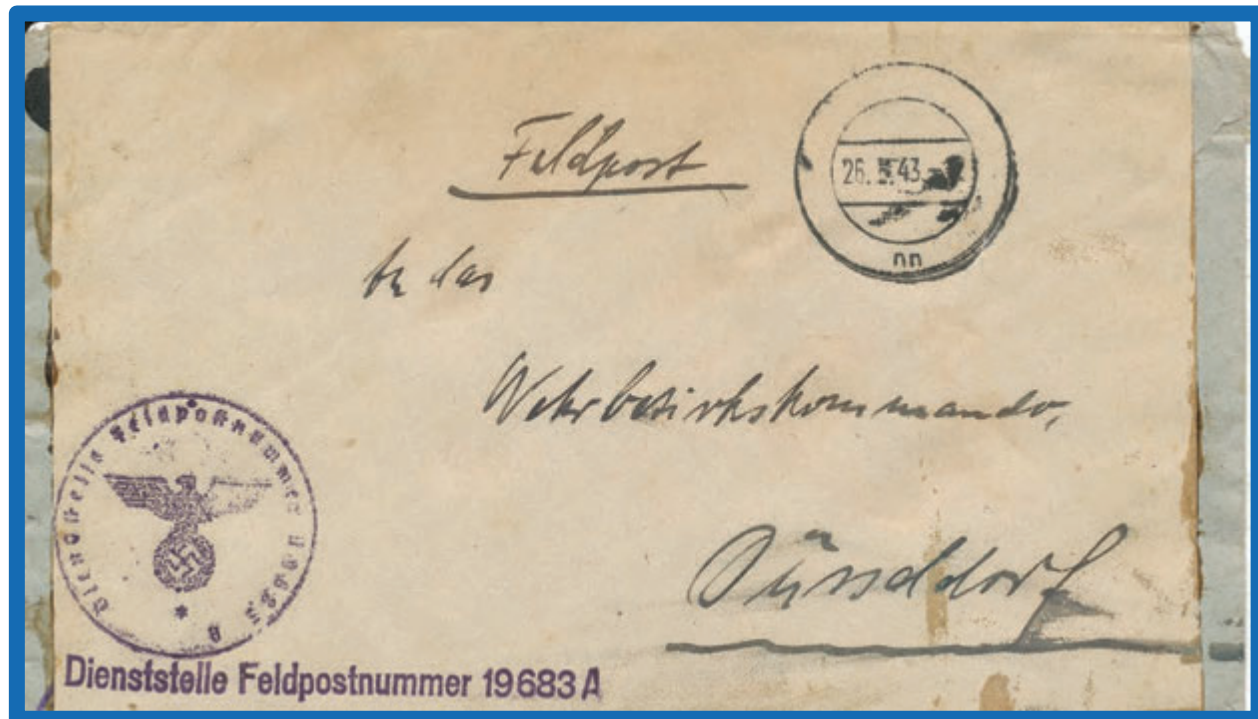 Feldpost
26. .43
nn
An das
Wehrbezirkskommando,
Düsseldorf
Dienststelle Feldpostnummer
Dienststelle Feldpostnummer 19683 A